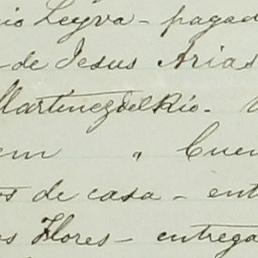 io Leyva - pagad
de Jesus Arias
Martinez del Rio.
em " Cuen
os de casa - ent
os Flores - entrega